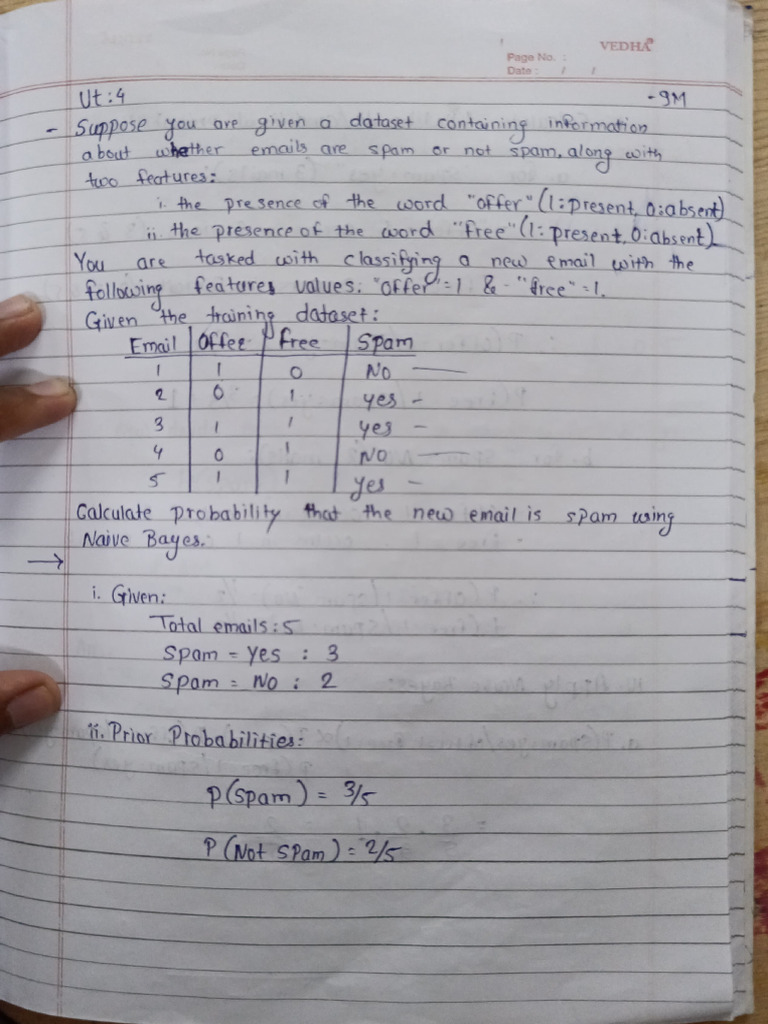 VEDHA
Page No. :
Date : / /
Ut:4 -9M
- Suppose you are given a dataset containing information
about whether emails are spam or not spam, along with
two features:
i. the presence of the word "offer" (1:present, 0:absent)
ii. the presence of the word "free" (1: present, 0:absent)
You are tasked with classifying a new email with the
following features values: "offer"=1 & "free"=1.
Given the training dataset:
Email Offer Free Spam
1 1 0 NO
2 0 1 yes -
3 1 1 yes -
4 0 1 NO
5 1 1 yes -
Calculate probability that the new email is spam using
Naive Bayes.
→
i. Given:
Total emails: 5
Spam = Yes : 3
Spam = NO : 2
ii. Prior Probabilities:
P(spam) = 3/5
P (Not Spam) = 2/5